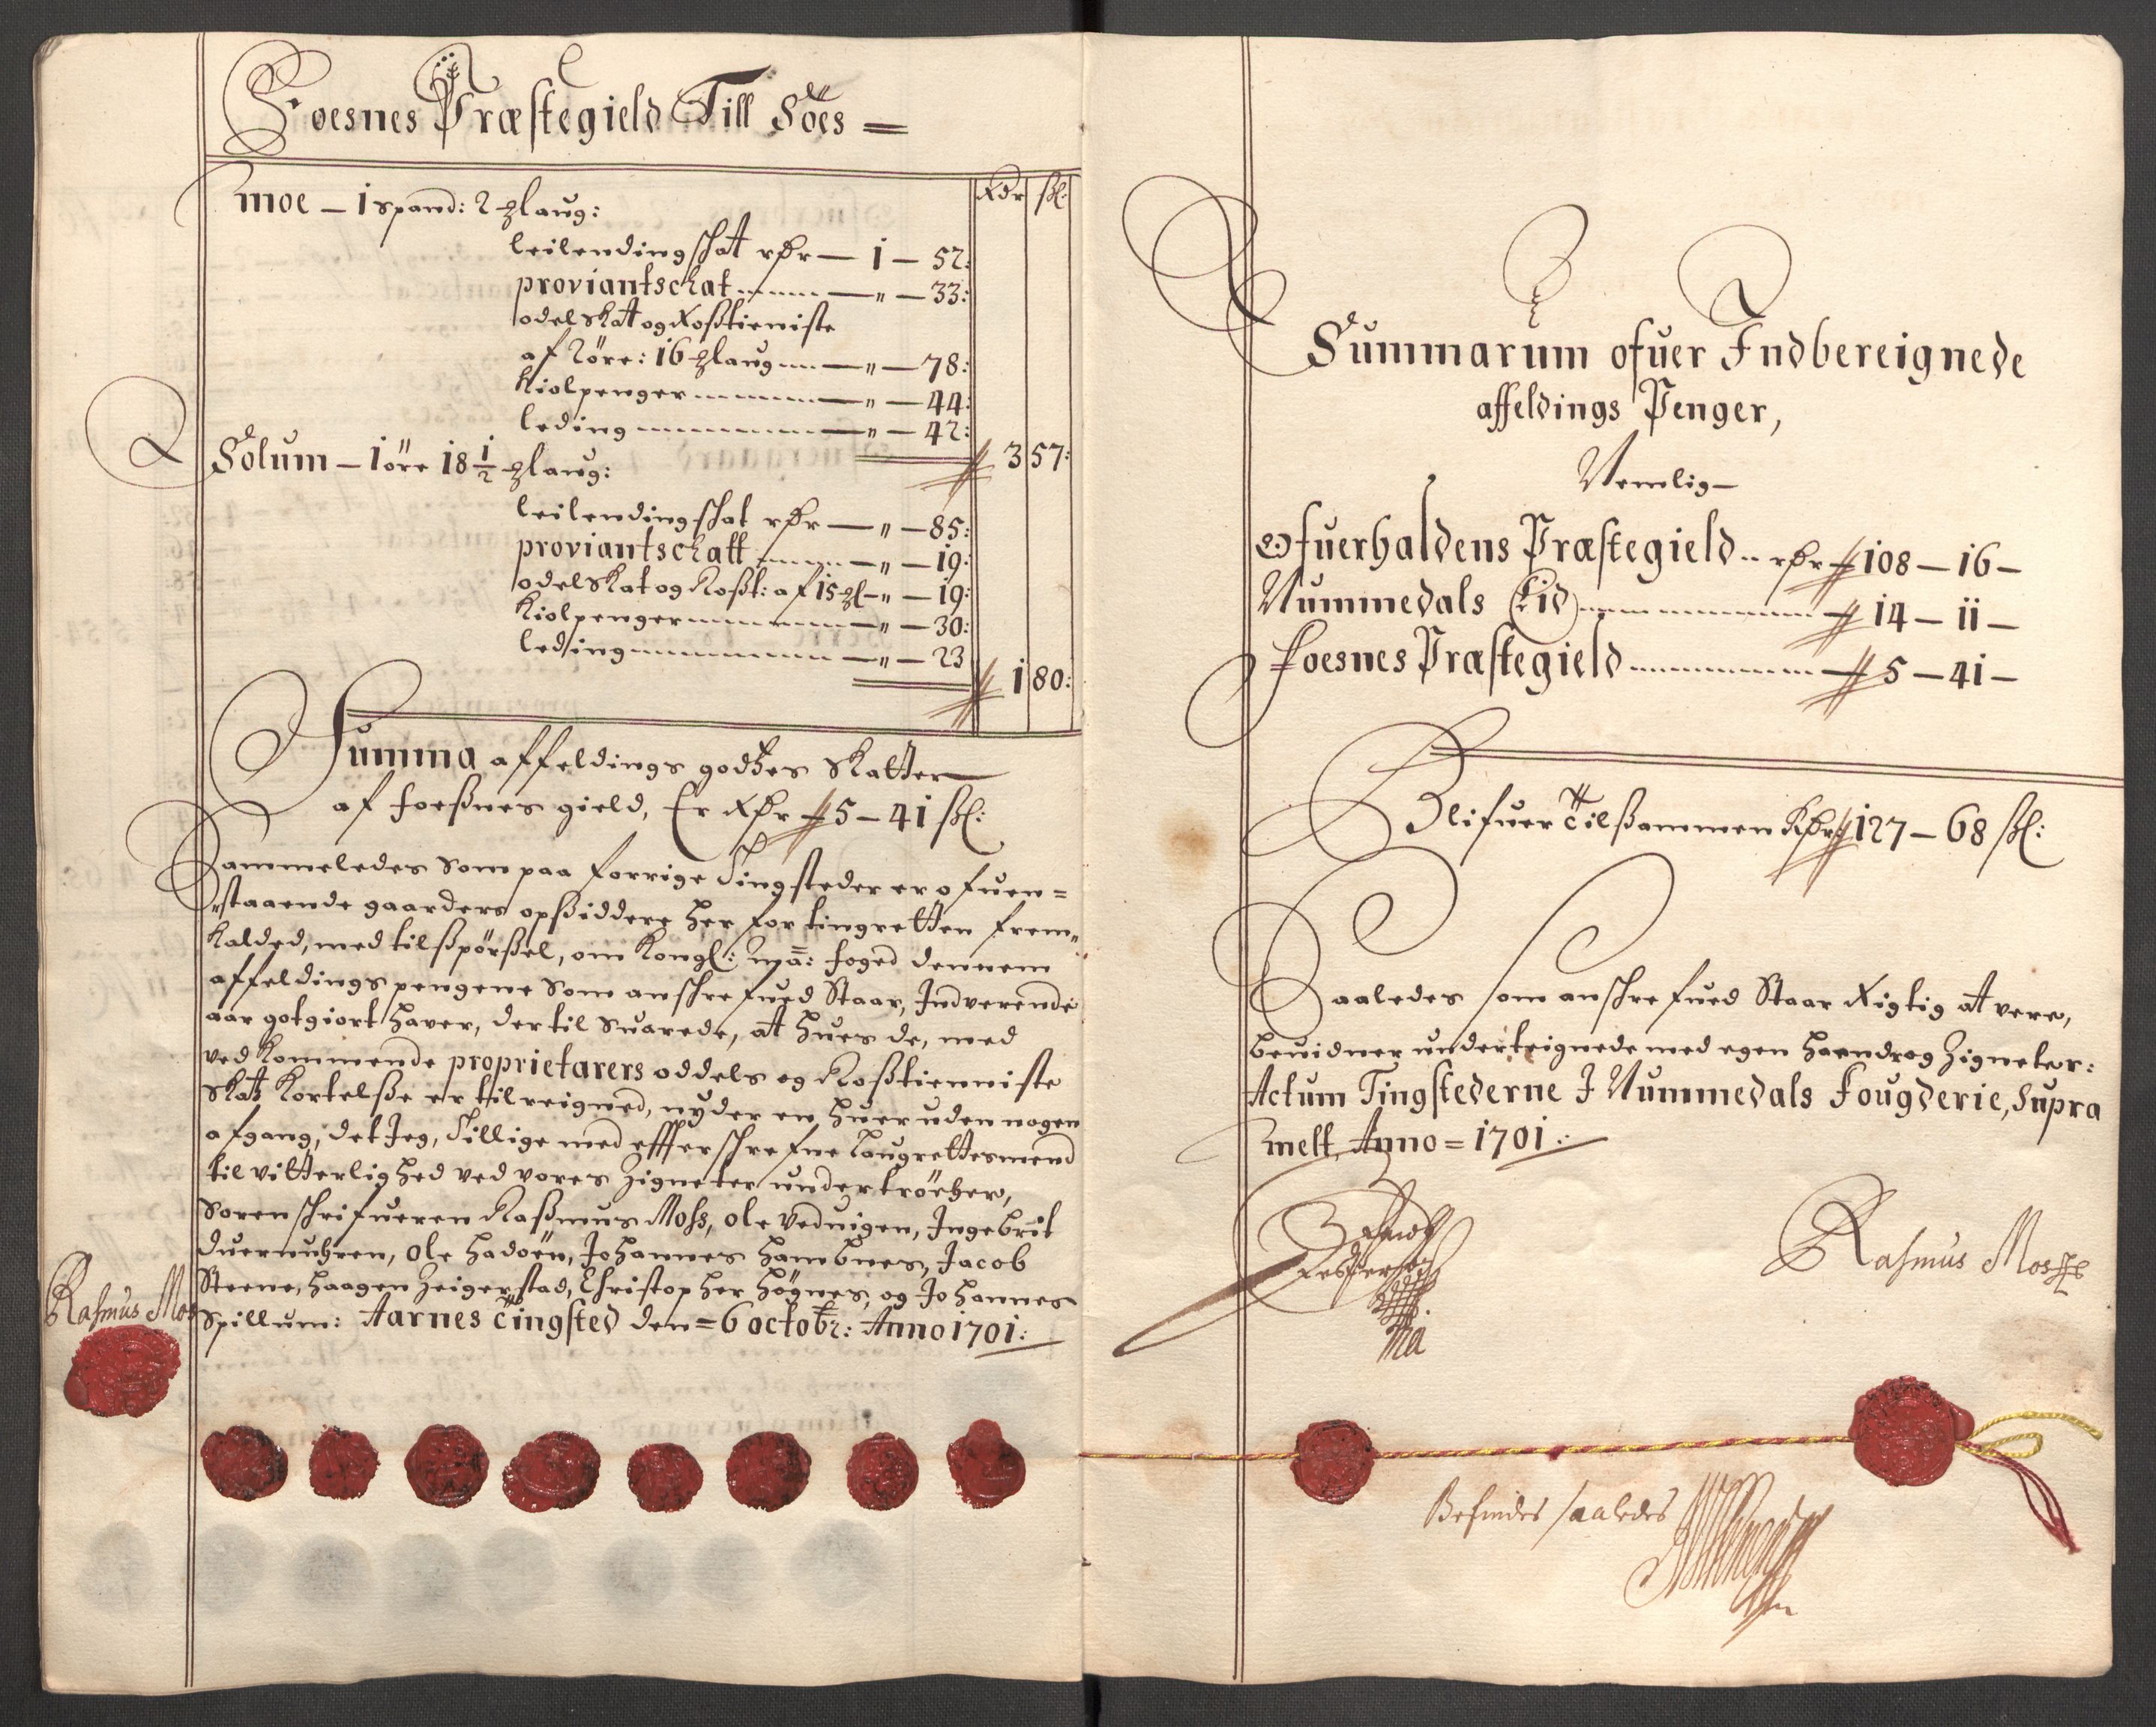 Foesnes Præstegield Till Söes =
Rdr ßl:
moe — 1 spand: 2 ꝫlaug:
leilendingschat rdr — 1 — 52:
proviantschat — " — 33:
odelskat og Roßtieniste
af 2 öre: 16 ꝫlaug — " — 78:
Kiolpenger — " — 44:
leding — " — 42:
3 57:
Sölum — 1 öre 18 1/2 ꝫlaug:
leilendingschat rdr — " — 85:
proviantschatt — " — 19:
odelskat og Roßt: af 15 ꝫl — " — 19:
Kiolpenger — " — 30:
leding — " — 23
1 80:
Summa affeldings godtzes Skatter
af foeßnes gield, Er Rdr 5 — 41 ßl:
Sammeledes Som paa forrige Tingsteder er ofuen=
staaende gaarders opßiddere her for tingretten frem„
Kalded, med tilßpörßel, om Kongl: May: foged dennem
affeldings pengene Som anschrefued Staar, Indverende
aar gotgiort haver, der til Suarede, at hues de, med
ved Kommende proprietarers oddels og Roßtienniste
Skatz Kortelße er tilreigned, nyder en huer uden nogen
afgang, det Jeg, Tillige med effterschrefne Laugrettesmend
til vitterlighed ved vores Zigneter undertröcher,
Sorenschrifueren Raßmus Moss, Ole Veduigen, Ingebrit
Duernuhren, Ole hadoen, Johannes hambnes, Jacob
Steene, haagen Zeigerstad, Christopher högnes, og Johannes
Spillum: Aarnes Tingsted den = 6 octobr: Anno 1701:
Rasmus Mos
Summarum ofuer Indbereignede
affeldings Penger,
Nemlig —
Ofuerhaldens Præstegield rdr 108 — 16 —
Nummedals Eid 14 — 11 —
foesnes Præstegield 5 — 41 —
Blifuer Tilßammen Rdr 127 — 68 ßl:
Saaledes som anschrefued Staar Rigtig at vere,
beuidner underteignede med egen haand og Zigneter:
Actum Tingstederne I Nummedals Fougderie, Supra
melt, Anno = 1701:
Rasmus Moss
Befindes saaledes